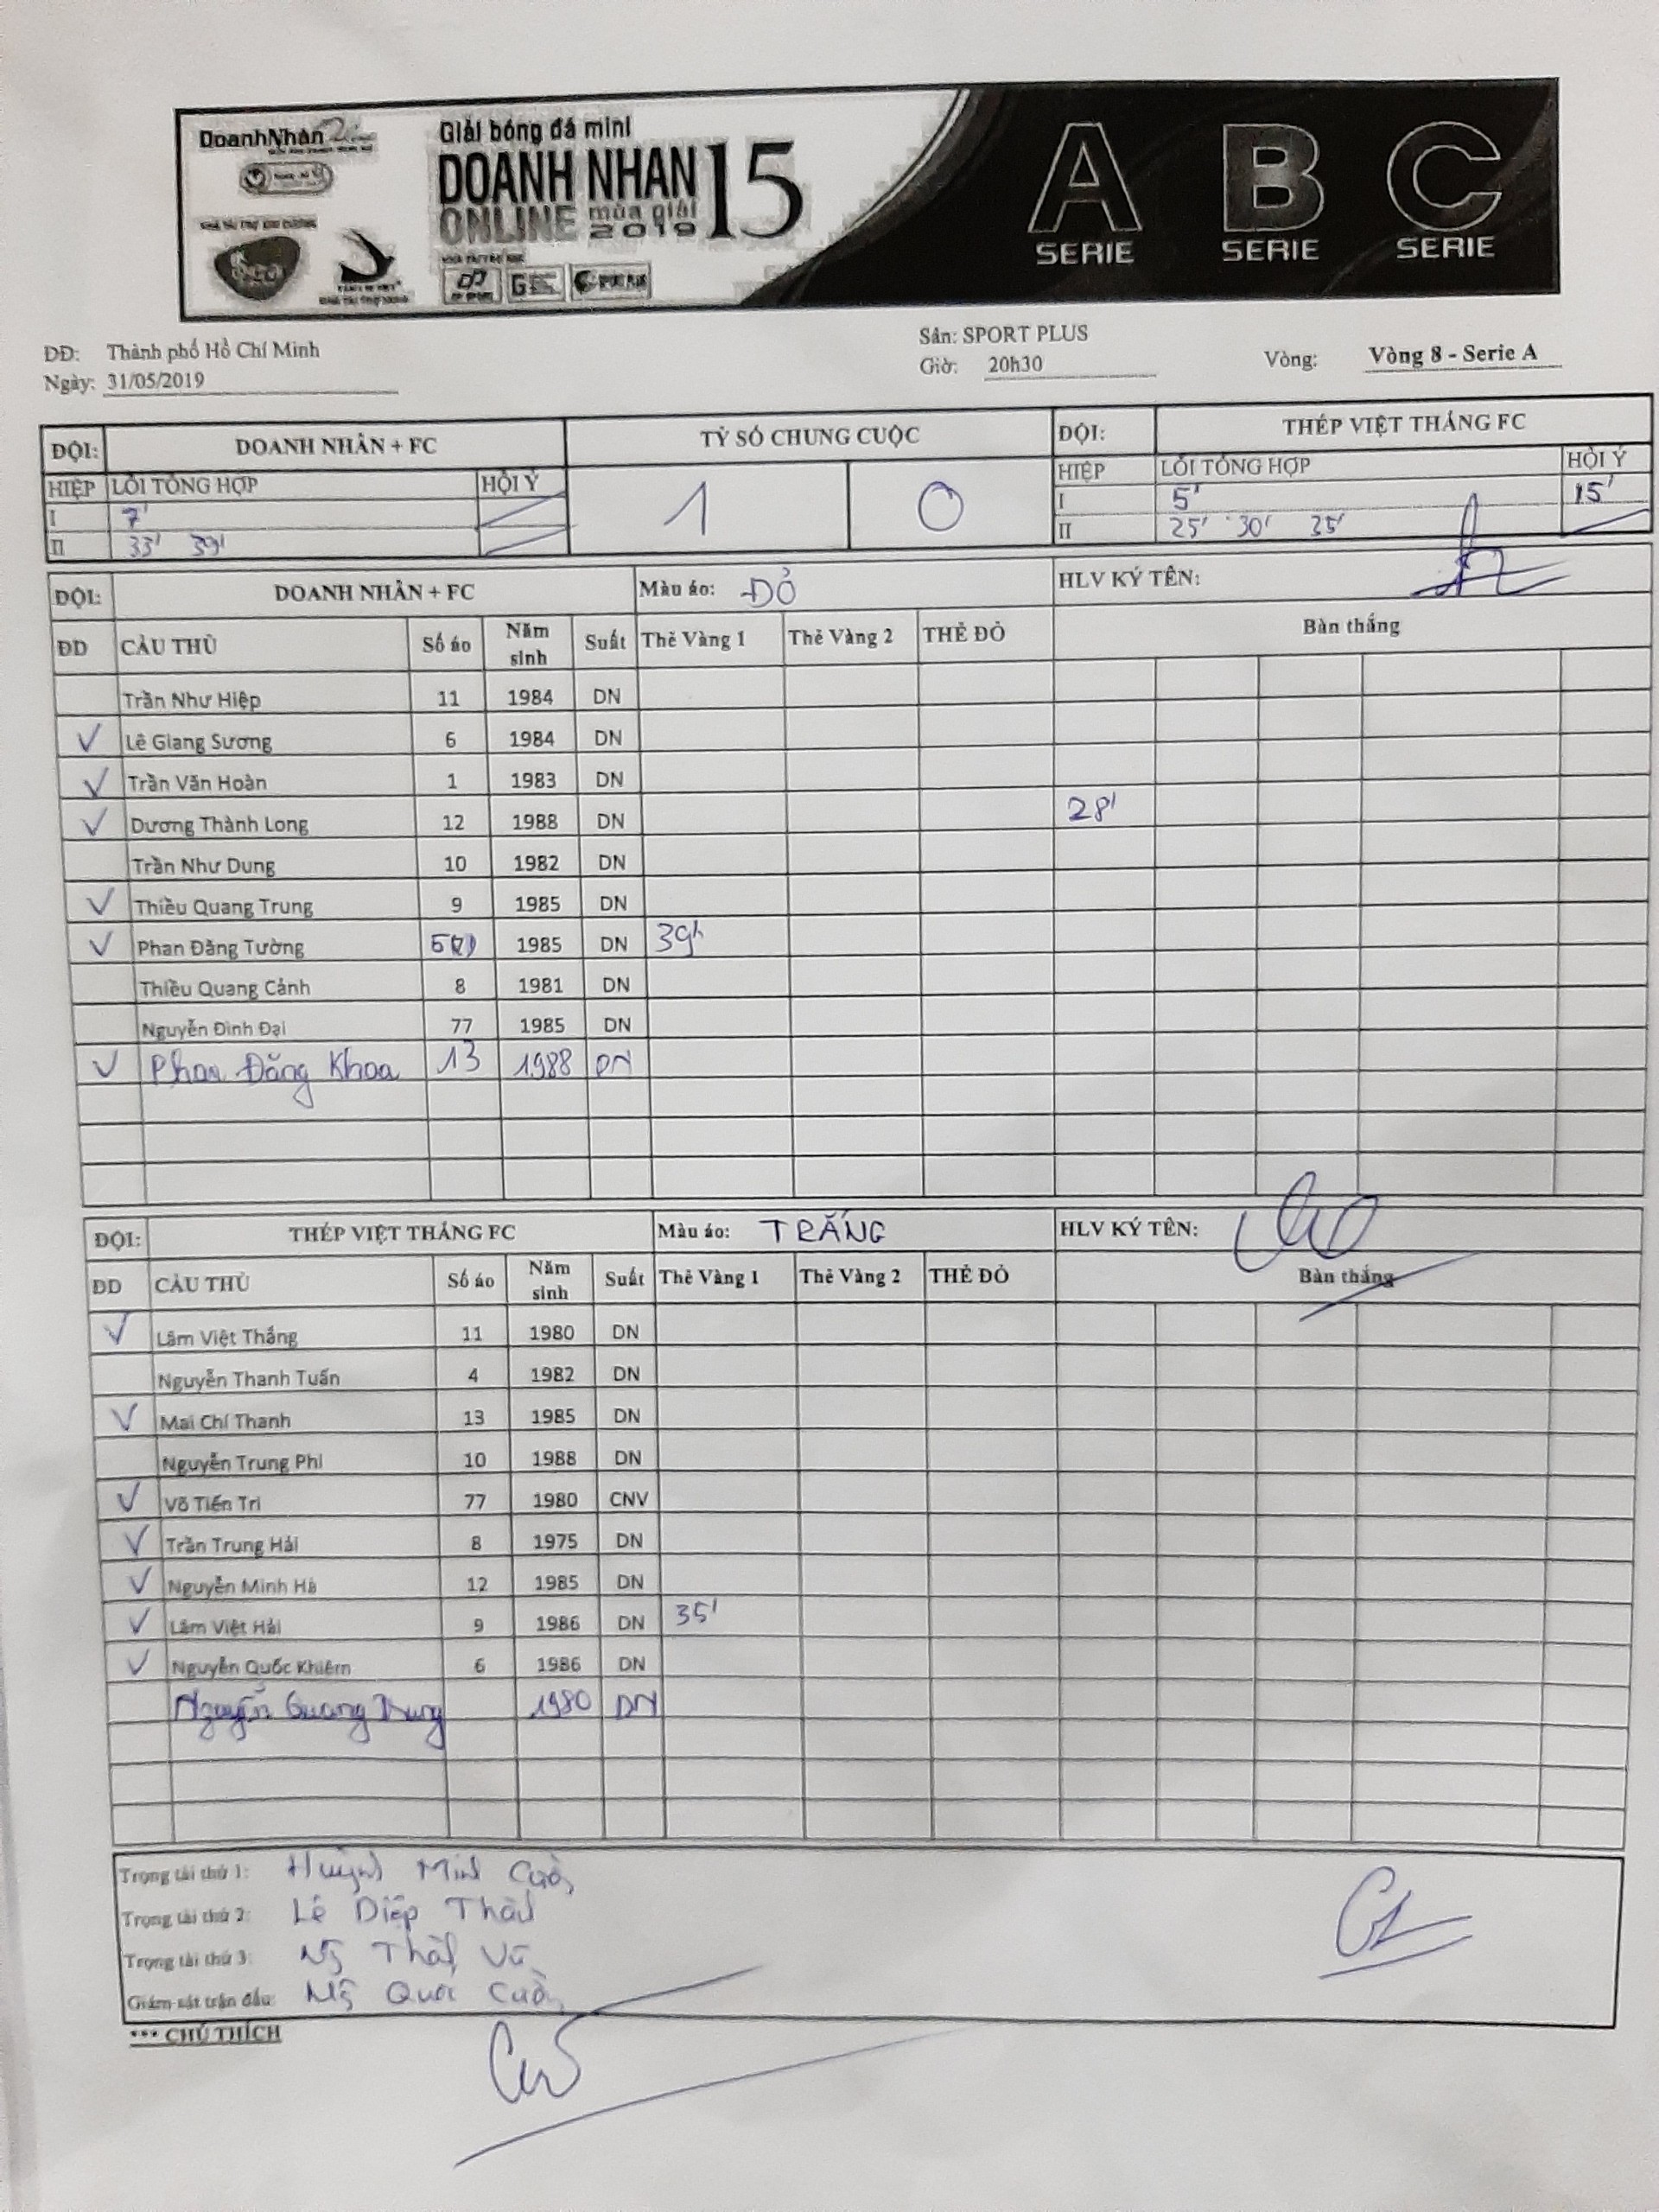 DoanhNhân
Giải bóng đá mini
DOANH NHAN 15
ONLINE mùa giải 2019
A B C
SERIE SERIE SERIE
ĐĐ: Thành phố Hồ Chí Minh
Sân: SPORT PLUS
Ngày: 31/05/2019
Giờ: 20h30
Vòng: Vòng 8 - Serie A
ĐỘI: DOANH NHÂN + FC TỶ SỐ CHUNG CUỘC ĐỘI: THÉP VIỆT THẮNG FC
HIỆP LỖI TỔNG HỢP HỘI Ý 1 0 HIỆP LỖI TỔNG HỢP HỘI Ý
I 7' I 5' 15'
II 33' 39' II 25' 30' 35'
ĐỘI: DOANH NHÂN + FC Màu áo: ĐỎ HLV KÝ TÊN:
ĐD CẦU THỦ Số áo Năm sinh Suất Thẻ Vàng 1 Thẻ Vàng 2 THẺ ĐỎ Bàn thắng
Trần Như Hiệp 11 1984 DN
✓ Lê Giang Sương 6 1984 DN
✓ Trần Văn Hoàn 1 1983 DN
✓ Dương Thành Long 12 1988 DN 28'
Trần Như Dung 10 1982 DN
✓ Thiều Quang Trung 9 1985 DN
✓ Phan Đăng Tường 1985 DN 39'
Thiều Quang Cảnh 8 1981 DN
Nguyễn Đình Đại 77 1985 DN
✓ Phan Đăng Khoa 13 1988 DN
ĐỘI: THÉP VIỆT THẮNG FC Màu áo: TRẮNG HLV KÝ TÊN:
ĐD CẦU THỦ Số áo Năm sinh Suất Thẻ Vàng 1 Thẻ Vàng 2 THẺ ĐỎ Bàn thắng
✓ Lâm Việt Thắng 11 1980 DN
Nguyễn Thanh Tuấn 4 1982 DN
✓ Mai Chí Thanh 13 1985 DN
Nguyễn Trung Phi 10 1988 DN
✓ Võ Tiến Tri 77 1980 CNV
✓ Trần Trung Hải 8 1975 DN
✓ Nguyễn Minh Hà 12 1985 DN
✓ Lâm Việt Hải 9 1986 DN 35'
✓ Nguyễn Quốc Khiêm 6 1986 DN
Nguyễn Quang Dung 1980 DN
Trọng tài thứ 1: Huỳnh Minh
Trọng tài thứ 2: Lê Diệp
Trọng tài thứ 3:
Giám sát trận đấu:
*** CHÚ THÍCH